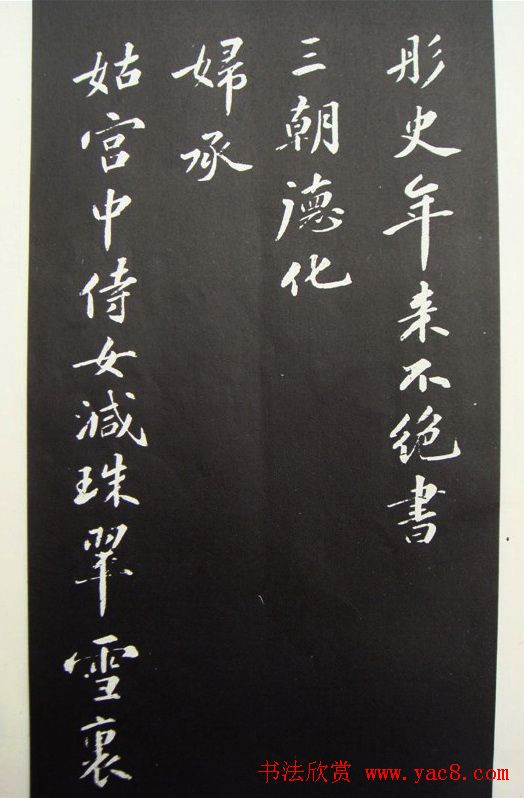 彤史年来不绝書
三朝德化
婦承
姑宫中侍女减珠翠雪裏
书法欣赏 www.yac8.com